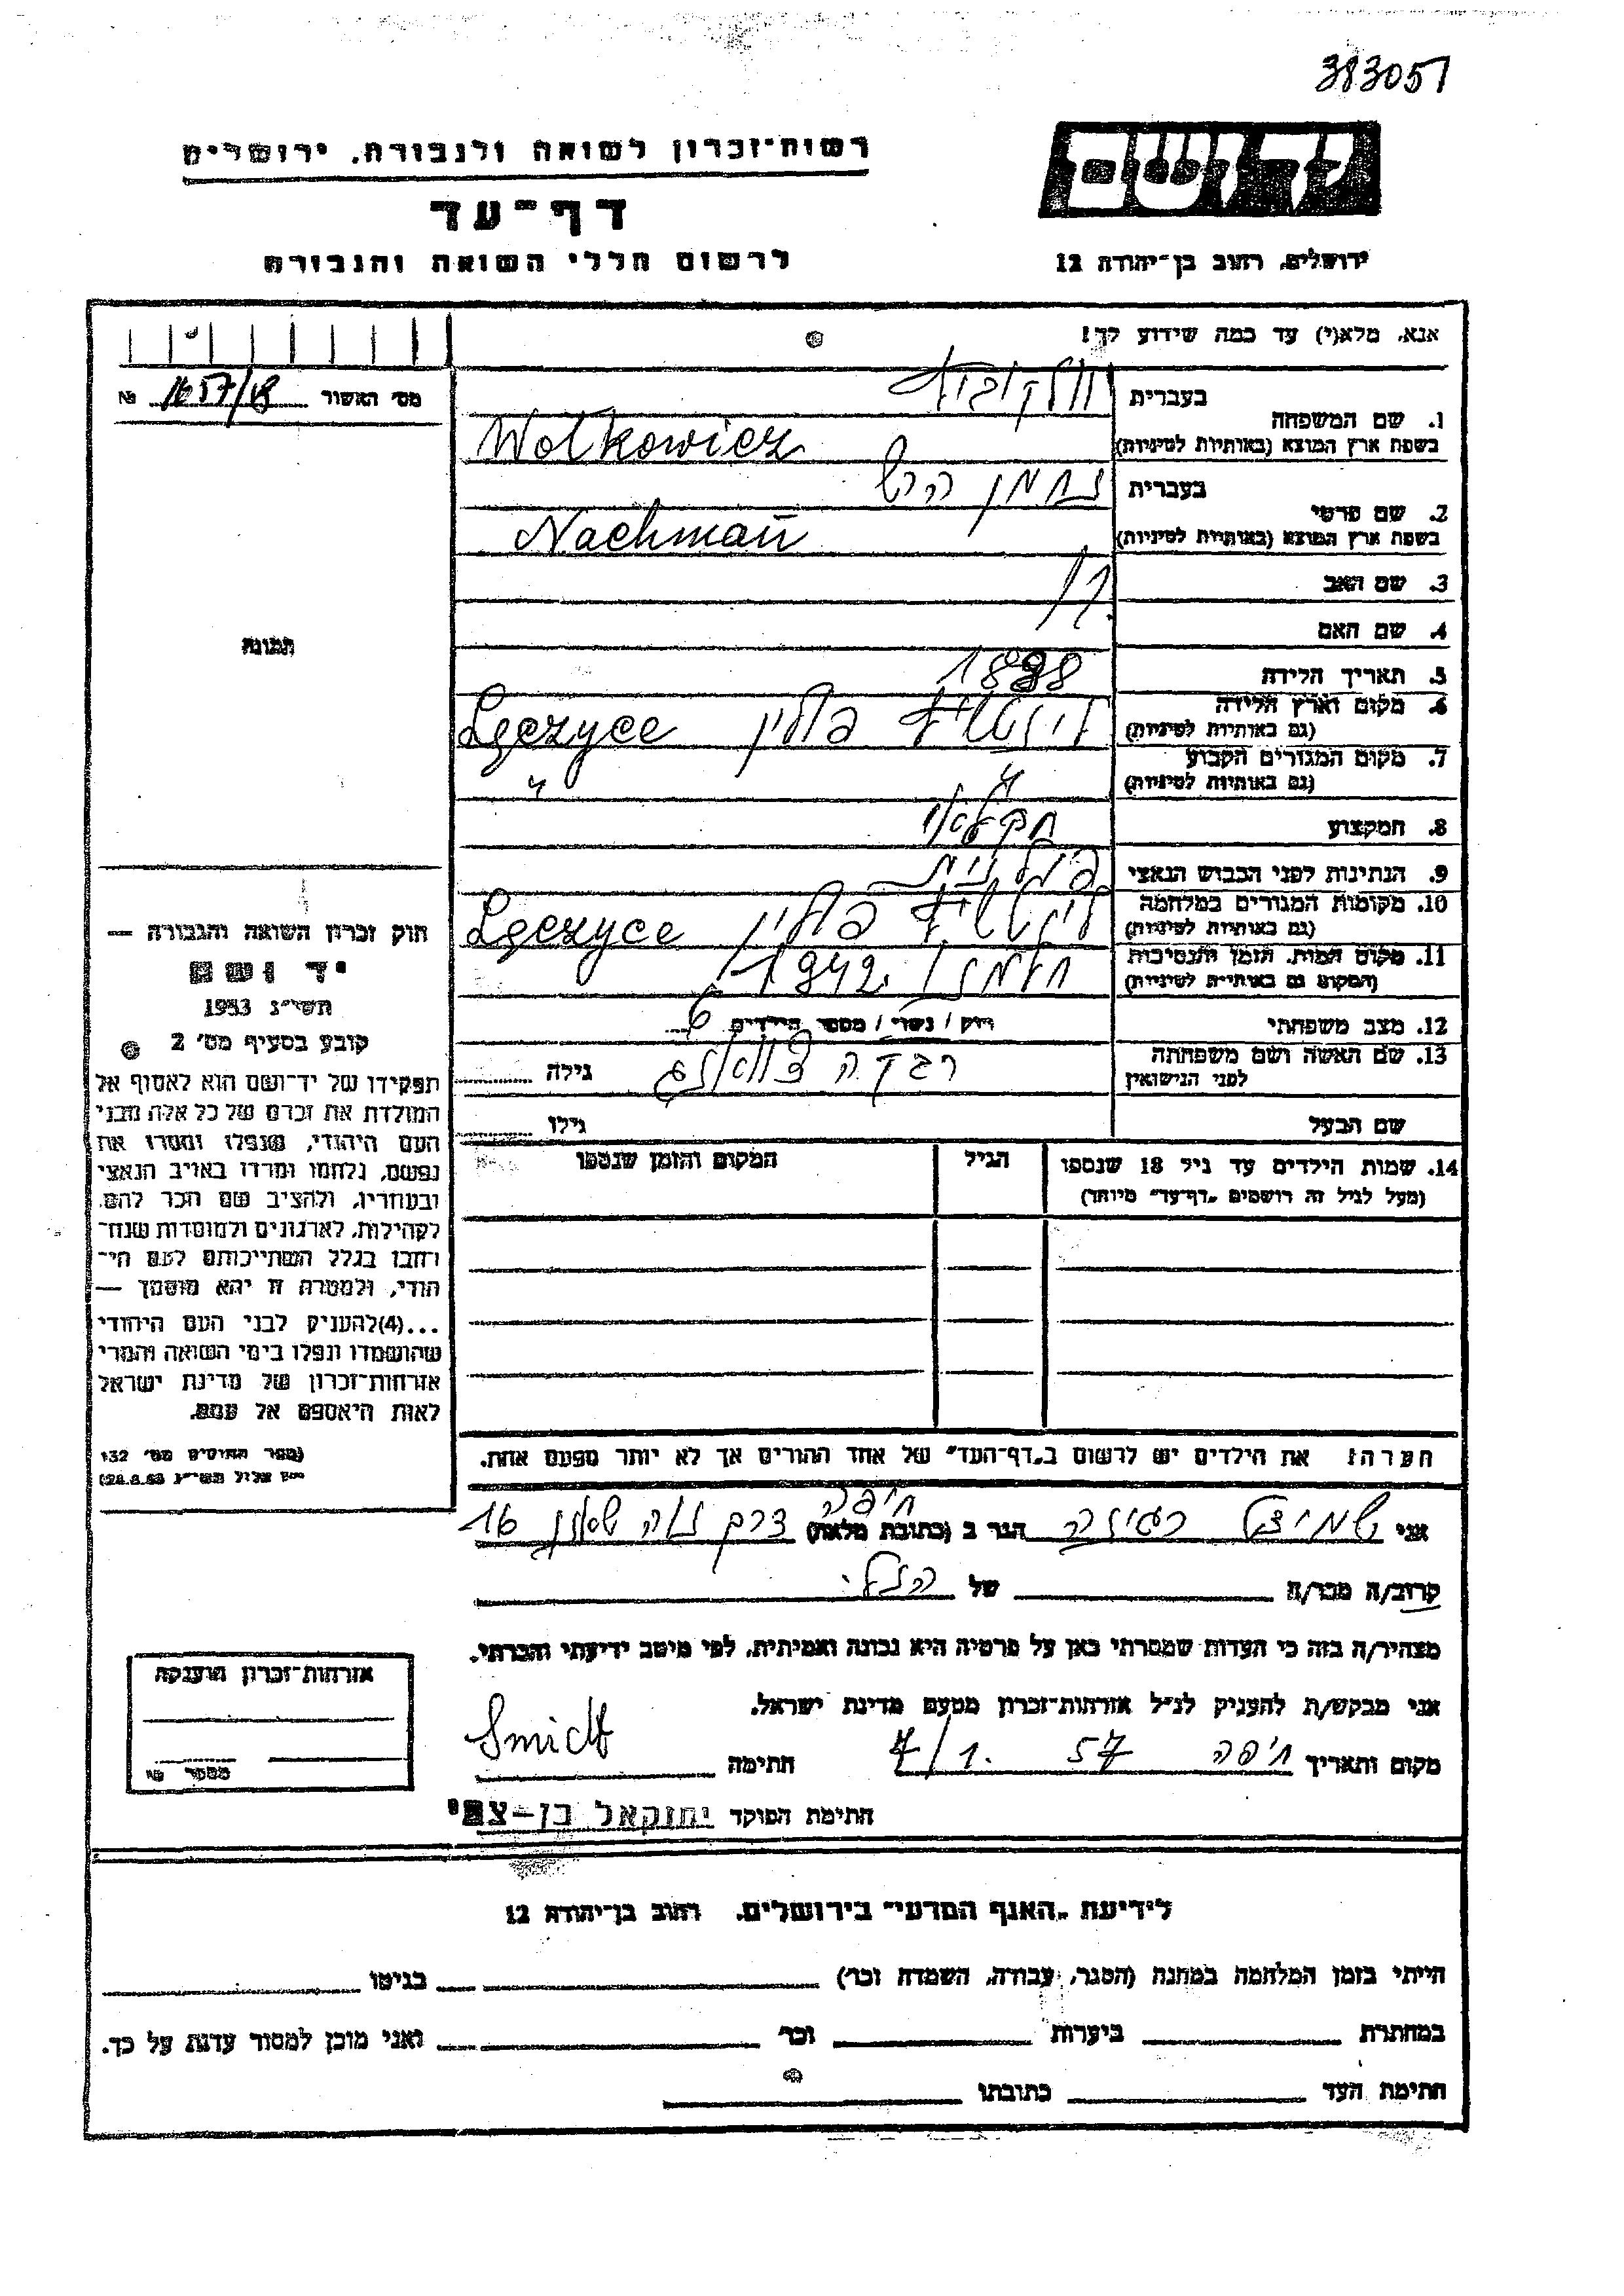 383051
רשות־זכרון לשואה ולגבורה. ירושלים
דף־עד
לרשום חללי השואה והגבורה
ירושלים, רחוב בן־יהודה 12
אנא, מלא(י) עד כמה שידוע לך!
מס׳ האשור №
1. שם המשפחה בעברית
בשפת ארץ המוצא (באותיות לטיניות) Wolkowicz
2. שם פרטי בעברית נחמן הרש
בשפת ארץ המוצא (באותיות לטיניות) Nachman
3. שם האב
4. שם האם
5. תאריך הלידה
6. מקום וארץ הלידה פולין
(גם באותיות לטיניות) Lgczyce
7. מקום המגורים הקבוע "
(גם באותיות לטיניות) "
8. המקצוע חקלאי
9. הנתינות לפני הכבוש הנאצי פולנית
10. מקומות המגורים במלחמה פולין
(גם באותיות לטיניות) Lgczyce
11. מקום המות, הזמן והנסיבות חלמנו 1942
(המקום גם באותיות לטיניות)
12. מצב משפחתי רווק / נשוי / מספר הילדים 6
13. שם האשה ושם משפחתה
לפני הנישואין גילה
שם הבעל גילו
14. שמות הילדים עד גיל 18 שנספו הגיל המקום והזמן שנספו
(מעל לגיל זה רושמים „דף־עד״ מיוחד)
הערה: את הילדים יש לרשום ב„דף־העד״ של אחד ההורים אך לא יותר מפעם אחת.
תמונה
חוק זכרון השואה והגבורה —
יד ושם
תשי״ג 1953
קובע בסעיף מס׳ 2
תפקידו של יד־ושם הוא לאסוף אל
המולדת את זכרם של כל אלה מבני
העם היהודי, שנפלו ומסרו את
נפשם, נלחמו ומרדו באויב הנאצי
ובעוזריו, ולהציב שם וזכר להם,
לקהילות, לארגונים ולמוסדות שנח־
רבו בגלל השתייכותם לעם הי־
הודי, ולמטרה זו יהא מוסמך —
...(4) להעניק לבני העם היהודי
שהושמדו ונפלו בימי השואה והמרי
אזרחות־זכרון של מדינת ישראל
לאות היאספם אל עמם.
(ספר החוקים מס׳ 132
אני הגר ב (כתובת מלאה) חיפה דרך נוה שאנן 16
קרוב/ה מכר/ה של הנ"ל
מצהיר/ה בזה כי העדות שמסרתי כאן על פרטיה היא נכונה ואמיתית, לפי מיטב ידיעתי והכרתי.
אני מבקש/ת להעניק לנ״ל אזרחות־זכרון מטעם מדינת ישראל.
מקום ותאריך חיפה 7/1. 57 חתימה Smidt
חתימת הפוקד יחזקאל בן־צבי
אזרחות־זכרון הוענקה
לידיעת „האגף המדעי״ בירושלים, רחוב בן־יהודה 12
הייתי בזמן המלחמה במחנה (הסגר, עבודה, השמדה וכו׳) בגיטו
במחתרת ביערות וכו׳ ואני מוכן למסור עדות על כך.
חתימת העד כתובתו